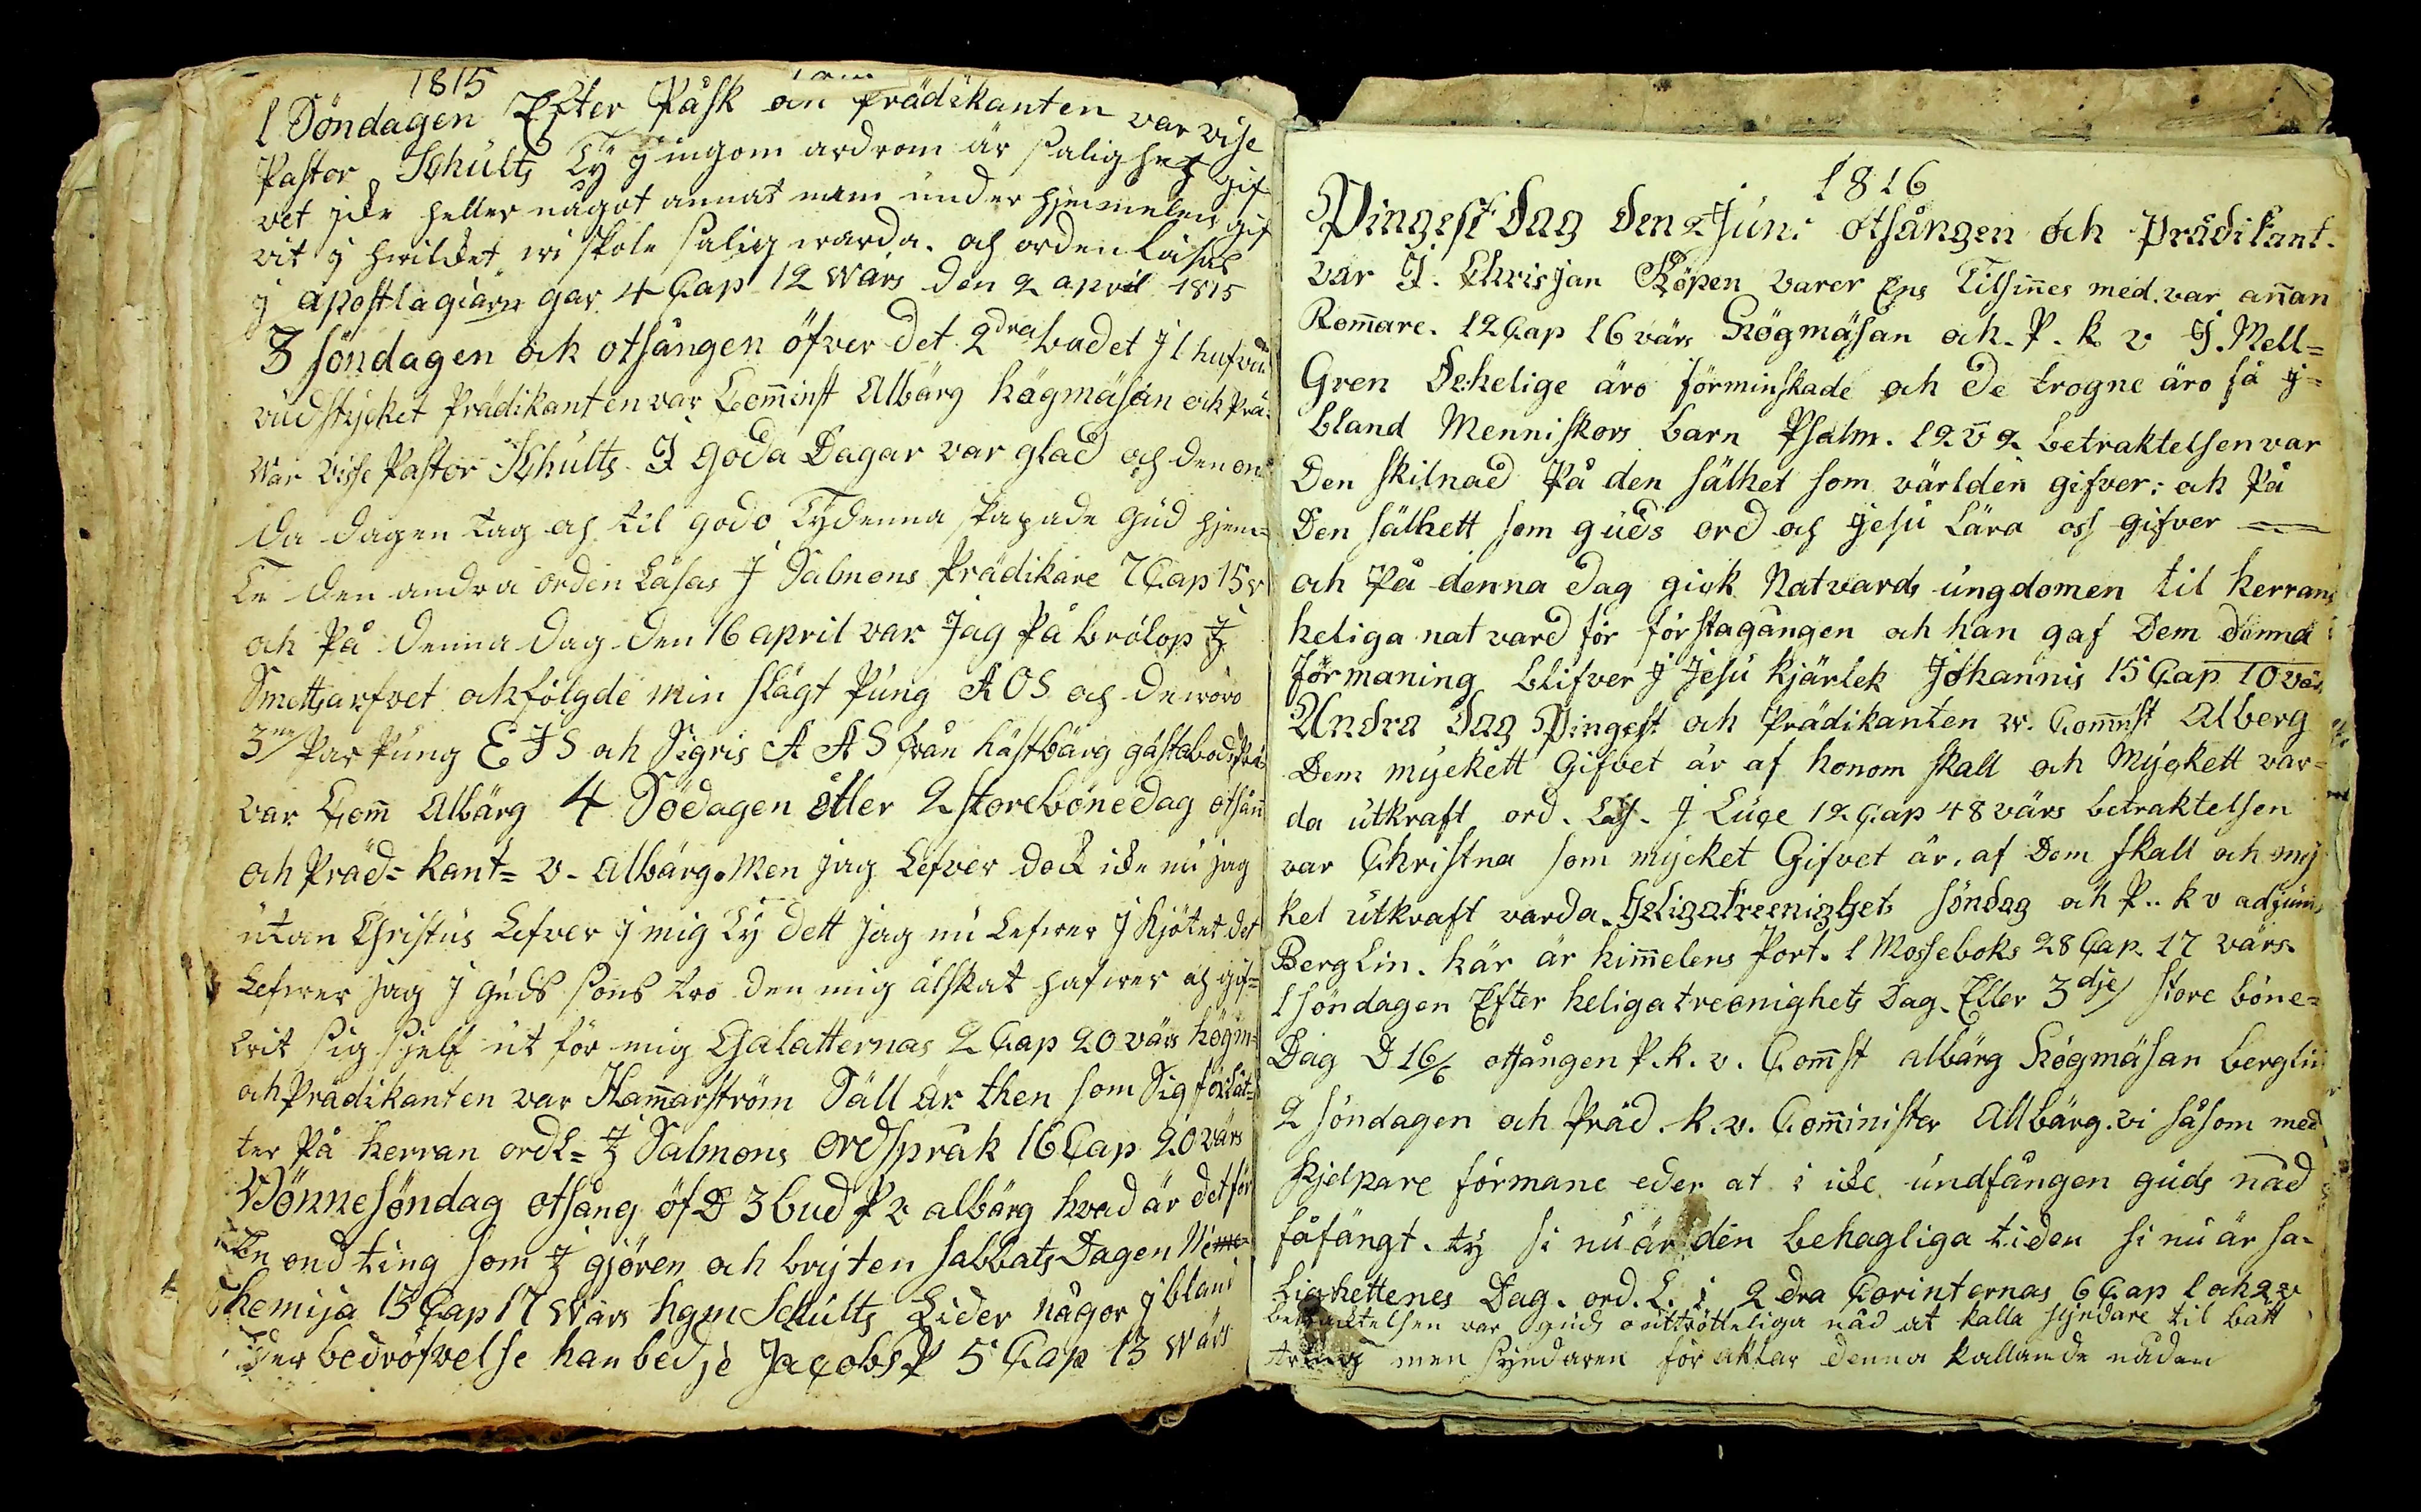 1815
1 Söndagen Efter Påsk an Prädikanten var vise
Pastor Schults Ty j ingom androm är salighet gif
vet jcke heller något annat namn under hjemmelen gif
vit j hvilcket wi skole salig warda. och orden läsas
j apostlagiarn gar 4 Cap 12 wärs den 2 april 1815
3 söndagen ock otsången öfver det 2dra budet j 1 hufvu
vudstycket Prädikanten var Commst Albärg högmäsan och Prä
var vise Pastor Schults. J goda Dagar var glad och den on
da dagen tag och til godo Ty denna skapade gud hjem=
te den andra orden Läsas J Salmons Prädikare 7 Cap 15 v
och På denna dag den 16 april var Jag På brölop J
Smettsarfvet och följde min slägt Pung A O S och de woro
3ne Par Pung E J S och Sigris A A S från hästbärg gästabods
var Com Albärg 4 Södagen äller 2 store bönedag otsån
och Präd= kant= v. albärg. Men jag Lefver dock icke nu jag
utan Christus Lefver j mig Ty dett jag nu Lefver j kjötet det
Lefwer jag j guds sons tro den mig älskat hafwer och gif=
vit sig sjelf ut för mig Galatternas 2 Cap 20 värs högm=
och Prädikanten var Hammarström Säll är then som Sig förlåt=
ter På herran ord L= J Salmons ordspråk 16 Cap 20 värs
Bönnesöndag otsång öf D 3 bud P v albärg hvad är det för
En ond ting som J gjören och bryten sabbats Dagen Ne
hemija 13 Cap 17 wärs hgm Schults Lider någor jbland
Eder bedröfvelse han bedje Jacobs P 5 Cap 13 wärs
1816
Pingest dag den 2 Juni otsången och Prädikant.
var J. Chrisjan Röpen varer Ens Tilsinnes med. var annan
Rommare. 12 Cap 16 värs Högmäsan och. P. k v J. Mell=
Gren De helige äro förminskade och de trogne äro få j=
bland Menniskors barn Psalm. 12 v 2 betraktelsen var
Den skilnad På den sälhet som världen gifver: och På
Den sälhett som guds ord och jesu Lära oss gifver
och På denna dag gick Natvards ungdomen til herrans
heliga natvard för förstagången och han gaf Dem denna
förmaning blifver j Jesu kjärlek Johannis 15 Cap 10 värs
Andra dag Pingest och Prädikanten v. Commst Alberg
Dem myckett Gifvet är af honom skall och Myckett var=
da utkraft ord. Läs. J Luce 12 Cap 48 värs betraktelsen
var Christna som mycket Gifvet är. af Dem skall och my
ket utkraft varda. Heligatreenighets söndag och P.. k v adjunc
Berglin. här är himmelens Port. 1 Moseboks 28 Cap. 17 värs.
1 söndagen Efter heliga treenighets Dag. Eller 3dje store böne=
Dag D 16/6 otsången P. k. v. Commst albärg Högmäsan berglin
2 söndagen och Präd. k. v. Comminister Allbärg. vi såsom med
hjelpare förmane eder at i icke undfången guds nåd
fåfängt. ty si nu är den behagliga tiden si nu är sa=
lighettenes Dag. ord. L. i 2 dra Corinternas 6 Cap 1 och 2 v
betracktelsen var guds outtrötteliga nåd at kalla syndare til bätt
tring men syndaren för aktar denna kallande nåden